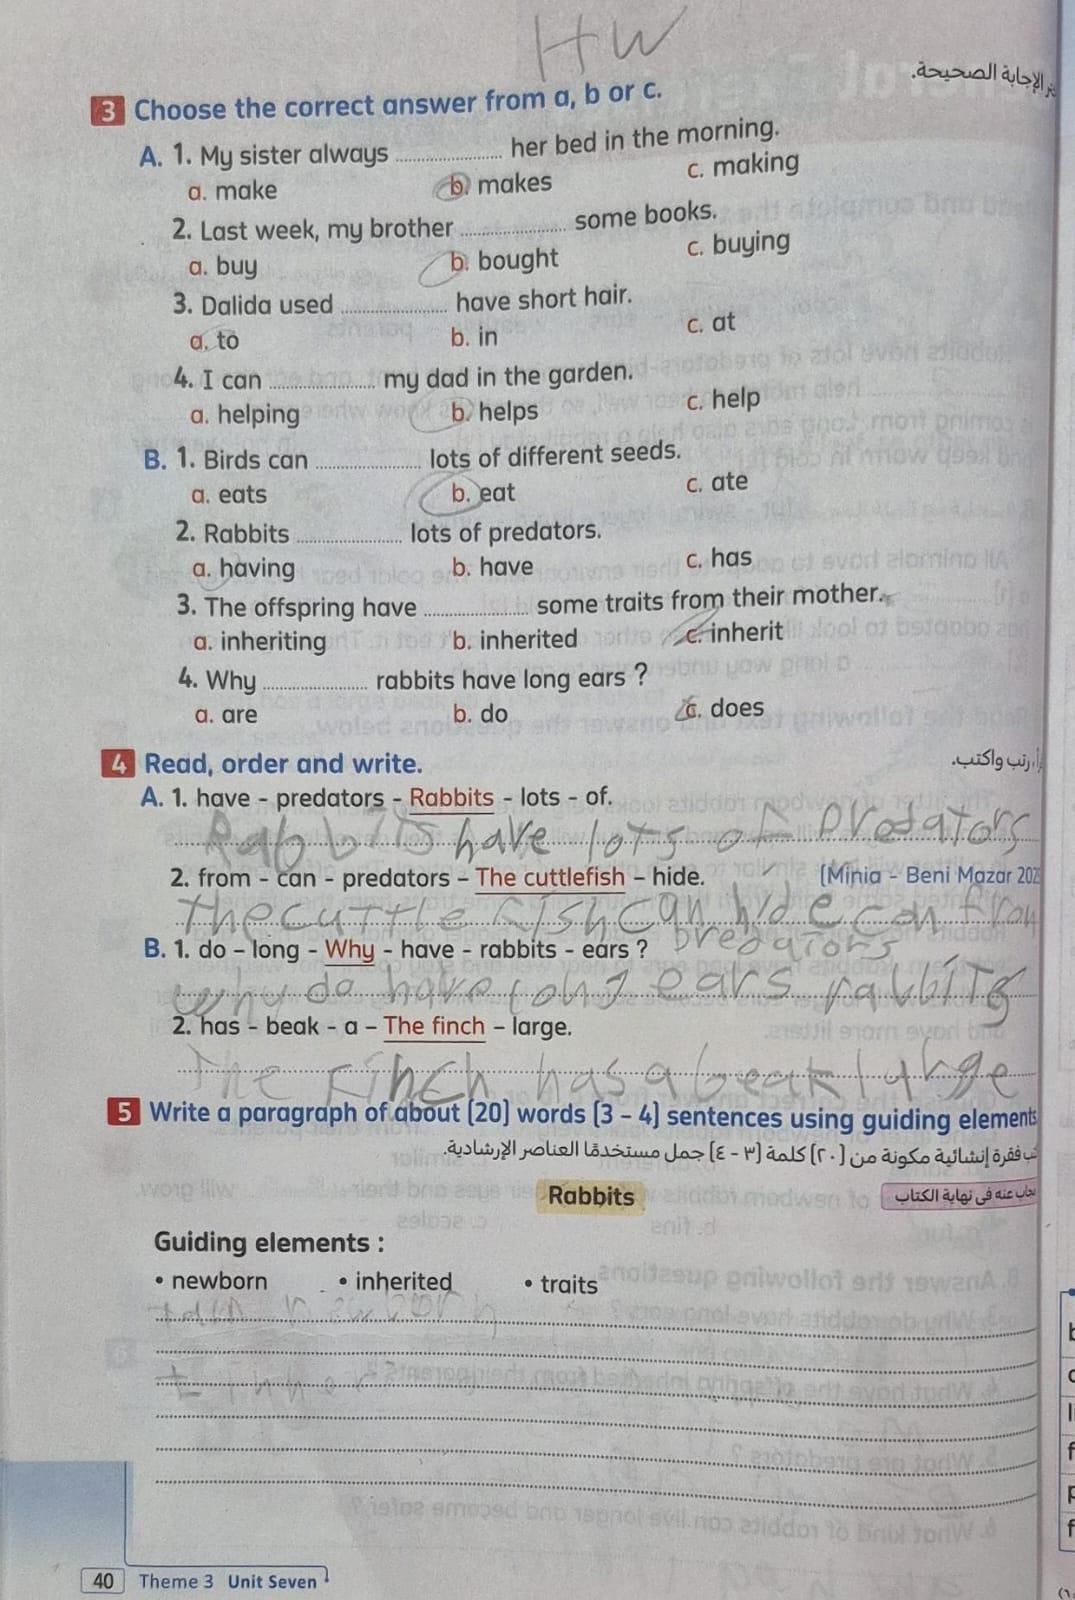 HW
الإجابة الصحيحة.
3 Choose the correct answer from a, b or c.
A. 1. My sister always .................... her bed in the morning.
a. make b. makes c. making
2. Last week, my brother .................... some books.
a. buy b. bought c. buying
3. Dalida used .................... have short hair.
a. to b. in c. at
4. I can .................... my dad in the garden.
a. helping b. helps c. help
B. 1. Birds can .................... lots of different seeds.
a. eats b. eat c. ate
2. Rabbits .................... lots of predators.
a. having b. have c. has
3. The offspring have .................... some traits from their mother.
a. inheriting b. inherited c. inherit
4. Why .................... rabbits have long ears ?
a. are b. do c. does
4 Read, order and write.
رتب واكتب.
A. 1. have - predators - Rabbits - lots - of.
Rabbits have lots of predators
2. from - can - predators - The cuttlefish - hide. (Minia - Beni Mazar 202
The cuttlefish can hide can from
predators
B. 1. do - long - Why - have - rabbits - ears ?
Why do have long ears rabbits
2. has - beak - a - The finch - large.
The finch has a beak large
5 Write a paragraph of about (20) words (3 - 4) sentences using guiding elements
فقرة إنشائية مكونة من (٢٠) كلمة (٣ - ٤) جمل مستخدمًا العناصر الإرشادية.
Rabbits
مجاب عنه فى نهاية الكتاب
Guiding elements :
• newborn • inherited • traits
newborn
40 Theme 3 Unit Seven